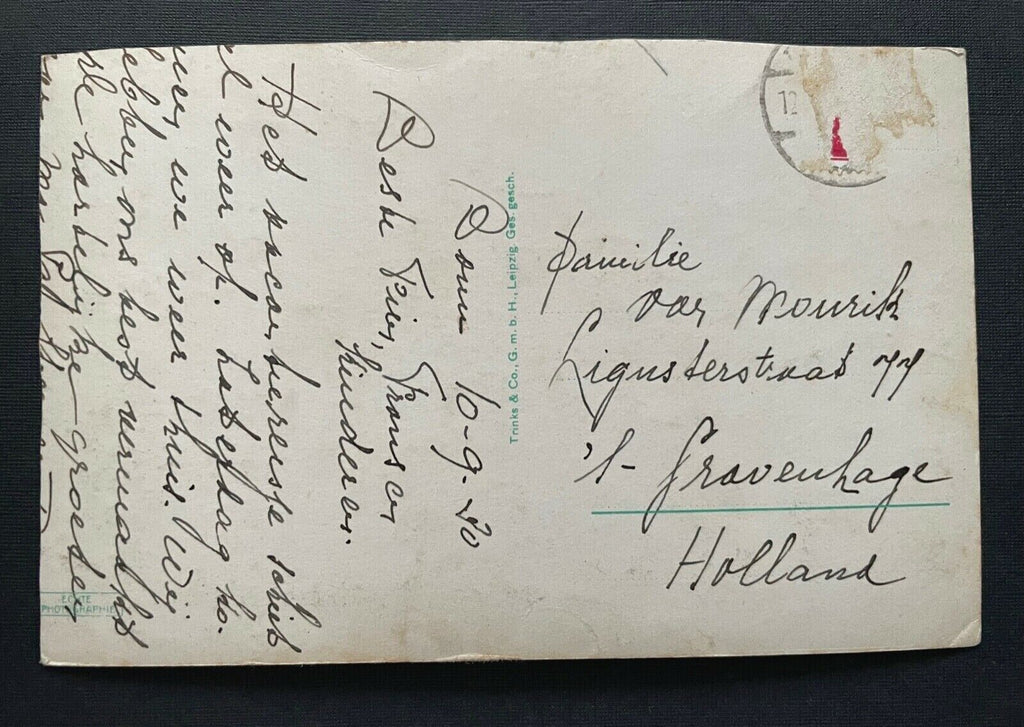 Bonn 10-9-30
Beste Piet, Frans en
Kinderen.
Het vacantiereisje schiet
al weer op. Zaterdag ho-
we weer thuis. Wij
hebben ons best vermaakt
hartelijke groeten
Trinks & Co., G. m. b. H., Leipzig. Ges. gesch.
ECHTE
PHOTOGRAPHIE
12
Familie
van Mourik
Ligusterstraat 77
's-Gravenhage
Holland